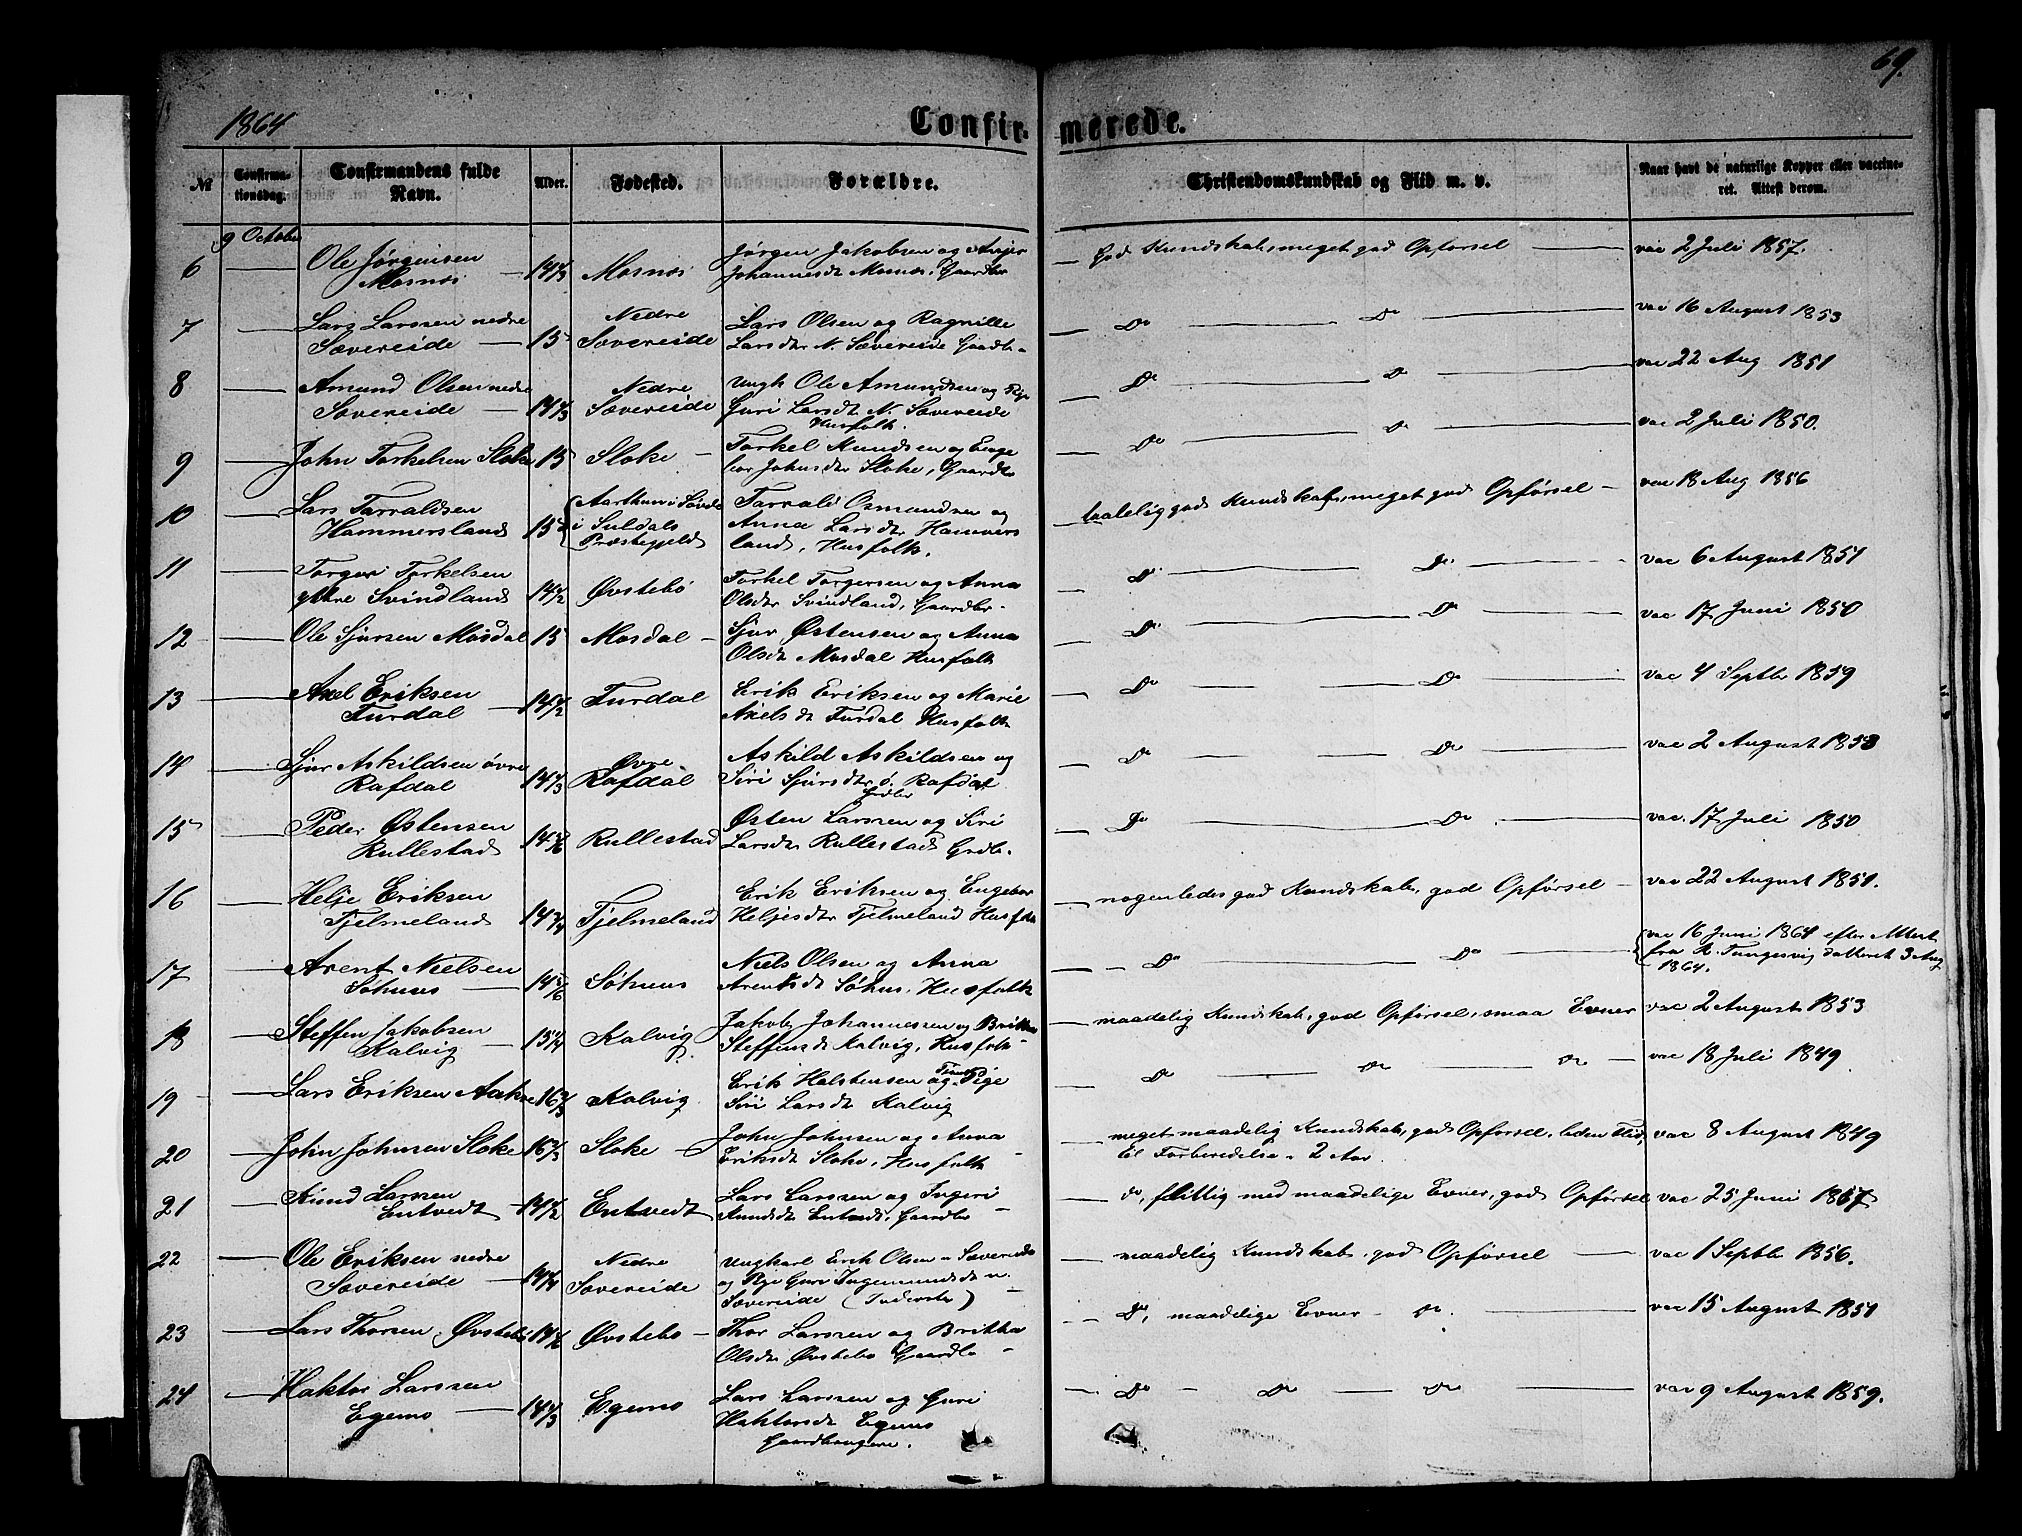 69.
1864
Confir- merede.
№ Confirmationsdag. Confirmandens fulde Navn. Alder. Fødested. Forældre. Christendomskundskab og Flid m. v. Naar havt de naturlige Kopper eller vaccineret. Attest derom.
9 October
6 Ole Jørgensen Mosnøs 14 1/3 Mosnøs Jørgen Jakobsen og Johannesdt Mosnøs, Gaardbr God Kundskab, meget god Opførsel vac 2 Juli 1857.
7 Lars Larssen nedre Sævereide 15 Nedre Sævereide Lars Olsen og Ragnille Larsdtr N. Sævereide Gaardbr Do Do vac 16 August 1853
8 Amund Olsen nedre Sævereide 14 1/3 Nedre Sævereide Ungk Ole Amundsen og Pige Guri Larsdt N. Sævereide Husfolk. Do Do vac 22 Aug 1851
9 John Torkelsen Sloke 15 Sloke Torkel Knudsen og Engebor Johnsdtr Sloke, Gaardbr Do Do vac 2 Juli 1850.
10 Lars Tarraldsen Hammersland 15 i Suldals Præstegjeld Tarrald Osmundsen og Anna Larsdtr Hammersland, Husfolk. taalelig god Kundskab, meget god Opførsel vac 18 Aug 1856
11 Torger Torkelsen Svindland 14 1/2 Øvstebø Torkel Torgersen og Anna Olsdtr Svindland, Gaardbr. Do Do vac 6 August 1851
12 Ole Sjursen Mosdal 15 Mosdal Sjur Østensen og Anna Olsdt Mosdal Husfolk Do Do vac 17 Juni 1850
13 Axel Eriksen Furdal 14 1/2 Furdal Erik Eriksen og Marie Axelsdt Furdal Husfolk Do Do vac 4 Septbr 1859
14 Sjur Askildsen øvre Rafdal 14 1/3 Øvre Rafdal Askild Askildsen og Siri Sjursdtr ø. Rafdal Grdbr Do Do vac 2 August 1853
15 Peder Østensen Rullestad 14 5/6 Rullestad Østen Larssen og Siri Larsdtr Rullestad Grdb. Do Do vac 17 Juli 1850
16 Helje Eriksen Fjelmeland 14 3/4 Fjelmeland Erik Eriksen og Engebor Heljesdtr Fjelmeland Husfolk nogenledes god Kundskab, god Opførsel vac 22 August 1851.
17 Arent Nielsen Søhuus 14 5/6 Søhuus Niels Olsen og Anna Arentsdt Søhus, Husfolk Do Do vac 16 Juni 1864 efter Attest fra R. Tungesvig datteret 3 Aug 1864.
18 Steffen Jakobsen Kalvig 15 1/4 Kalvig Jakob Johannessen og Britha Steffensdt Kalvig, Husfolk maadelig Kundskab, god Opførsel, smaa Evner vac 2 August 1853
19 Lars Eriksen Aakre 16 2/3 Kalvig Erik Halstensen og Pige Siri Larsdt Kalvig Do Do Do vac 18 Juli 1849
20 John Johnsen Sloke 16 1/3 Sloke John Johnsen og Anna Eriksdt Sloke, Husfolk meget maadelig Kundskab, god Opførsel, liden Flid, til Forberedelse i 2 Aar. vac 8 August 1849
21 Knud Larssen Entvedt 14 1/2 Entvedt Lars Larssen og Ingeri Knudsdt Entvedt, Gaardbr do, flittig med maadelige Evner, god Opførsel vac 25 Juni 1857
22 Ole Eriksen nedre Sævereide 14 1/4 Nedre Sævereide Ungkarl Erik Olsen n Sævereide og Pige Guri Ingemundsdt n. Sævereide (Inderster) maadelig Kundskab, god Opførsel vac 1 Septbr 1856.
23 Lars Thorsen Øvstebø Øvstebø Thor Larssen og Britha Olsdtr Øvstebø Gaardbr Do, maadelige Evner Do vac 15 August 1851
24 Haktor Larssen Egemo 14 1/3 Egemo Lars Larssen og Guri Haktorsdt Egemo Gaardbrugere. Do Do Do vac 9 August 1859.